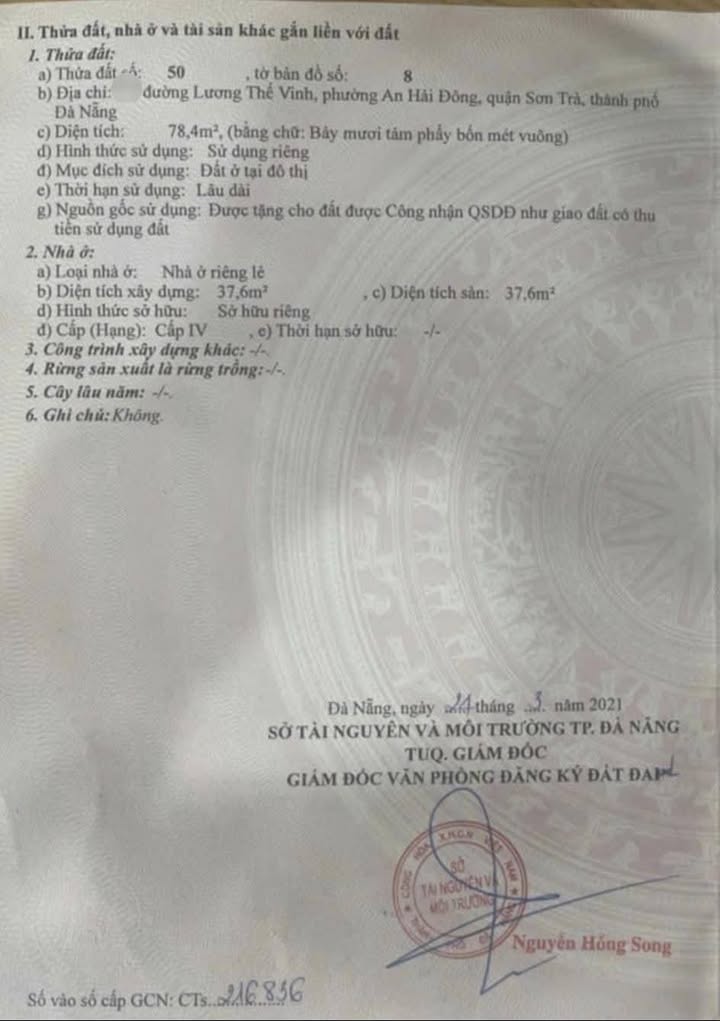 II. Thửa đất, nhà ở và tài sản khác gắn liền với đất
1. Thửa đất:
a) Thửa đất số: 50 , tờ bản đồ số: 8
b) Địa chỉ: đường Lương Thế Vinh, phường An Hải Đông, quận Sơn Trà, thành phố
Đà Nẵng
c) Diện tích: 78,4m², (bằng chữ: Bảy mươi tám phẩy bốn mét vuông)
d) Hình thức sử dụng: Sử dụng riêng
đ) Mục đích sử dụng: Đất ở tại đô thị
e) Thời hạn sử dụng: Lâu dài
g) Nguồn gốc sử dụng: Được tặng cho đất được Công nhận QSDĐ như giao đất có thu
tiền sử dụng đất
2. Nhà ở:
a) Loại nhà ở: Nhà ở riêng lẻ
b) Diện tích xây dựng: 37,6m² , c) Diện tích sàn: 37,6m²
d) Hình thức sở hữu: Sở hữu riêng
đ) Cấp (Hạng): Cấp IV , e) Thời hạn sở hữu: -/-
3. Công trình xây dựng khác: -/-.
4. Rừng sản xuất là rừng trồng: -/-.
5. Cây lâu năm: -/-.
6. Ghi chú: Không.
Đà Nẵng, ngày 24 tháng 3 năm 2021
SỞ TÀI NGUYÊN VÀ MÔI TRƯỜNG TP. ĐÀ NẴNG
TUQ. GIÁM ĐỐC
GIÁM ĐỐC VĂN PHÒNG ĐĂNG KÝ ĐẤT ĐAI
CỘNG HÒA X.H.C.N VIỆT NAM
SỞ
TÀI NGUYÊN VÀ
MÔI TRƯỜNG
Nguyễn Hồng Song
Số vào sổ cấp GCN: CTs..216.836